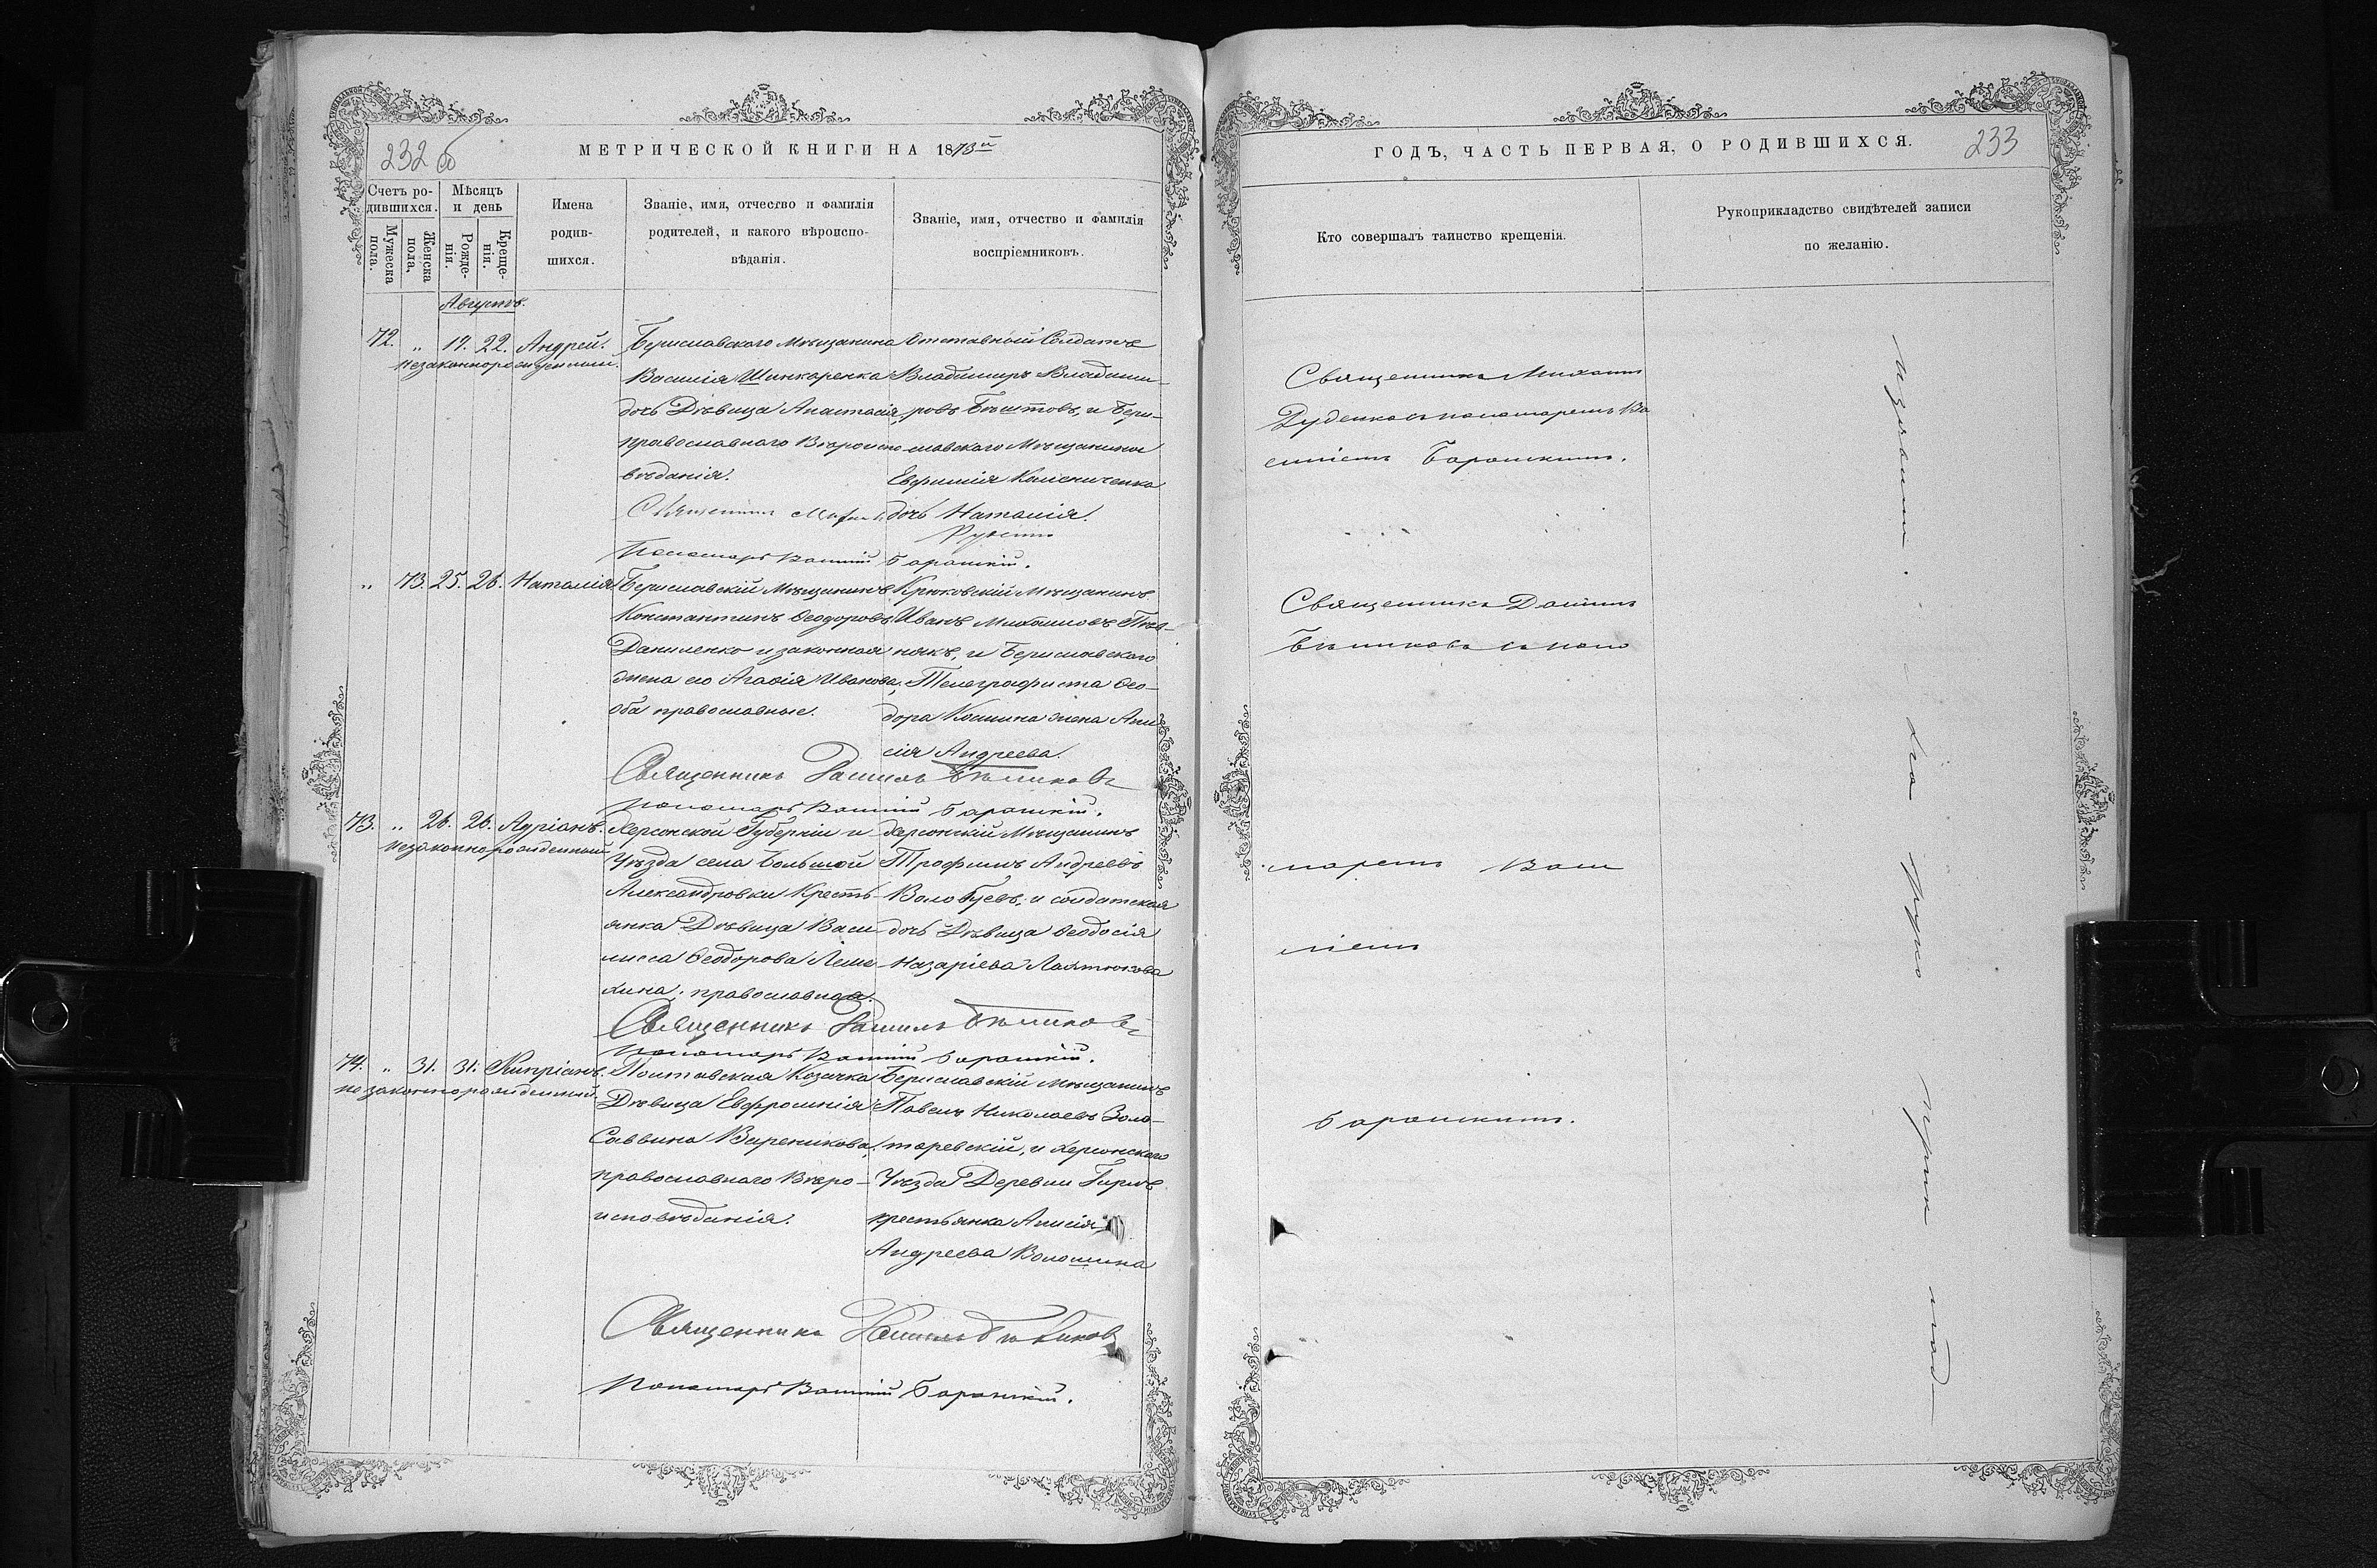 232 об
МЕТРИЧЕСКОЙ КНИГИ НА 1873й
Счетъ родившихся.
Мѣсяцъ и день
Имена родившихся.
Званіе, имя, отчество и фамилія родителей, и какого вѣроисповѣданія.
Званіе, имя, отчество и фамилія воспріемниковъ.
Мужеска пола.
Женска пола.
Рожденія.
Крещенія.
Августъ.
72. „ 17. 22. Андрей.
незаконнорожденный.
Бериславского Мѣщанина
Василія Шинкаренка
дочь Дѣвица Анастасія,
православнаго Вѣроиспо
вѣданія.
Отставной Солдатъ
Владиміръ Владимі-
ровъ и Бери-
славского Мѣщанина
Евфимія Колісниченка
дочь Наталія.
Священникъ
Пономарь Василій Барашкій.
„ 73. 25. 26. Наталія
Бериславскій Мѣщанинъ
Константинъ Ѳеодоровъ
Даниленко и законная
жена его Агаѳія Иванова,
оба православные.
Крюковскій Мѣщанинъ
Иванъ Михаиловъ Пѣв-
някъ, и Бериславского
Телеграфиста Ѳео-
дора Космина жена Ани
сія Андреева.
Священникъ Даніилъ Бѣликовъ
Пономарь Василій Барашкій.
73. „ 26. 26. Адріанъ.
незаконнорожденный
Херсонской Губерніи и
Уѣзда села Большой
Александровки Кресть-
янка Дѣвица Васи-
лисса Ѳеодорова Леме
хина, православная.
Херсонскій Мѣщанинъ
Трофимъ Андреевъ
Волобуевъ, и солдатская
дочь Дѣвица Ѳеодосія
Назаріева
Священникъ Даніилъ Бѣликовъ
Пономарь Василій Барашкій.
74. „ 31. 31. Кипріанъ.
незаконнорожденный.
Полтавская Козачка
Дѣвица Евфросинія
Саввина Вареникова,
православнаго Вѣро-
исповѣданія.
Бериславскій Мѣщанинъ
Павелъ Николаевъ Золо-
таревскій, и Херсонского
Уѣзда Деревни
крестьянка Анисія
Андреева Волошина
Священникъ Даніилъ Бѣликовъ
Пономарь Василій Барашкій.
ГОДЪ, ЧАСТЬ ПЕРВАЯ, О РОДИВШИХСЯ.
233
Кто совершалъ таинство крещенія.
Рукоприкладство свидѣтелей записи по желанію.
Священникъ Михаилъ
Дуденко съ пономаремъ Ва
силіемъ Барашкимъ.
Священникъ Даніилъ
Бѣликовъ съ поно
маремъ Васи
ліемъ
Барашкимъ.